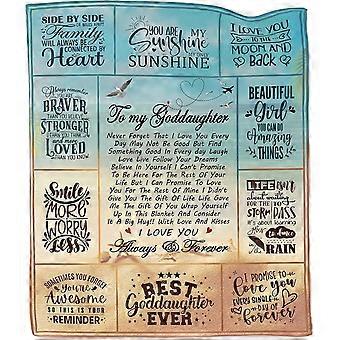 SIDE BY SIDE
OR MILES APART
Family
WILL ALWAYS BE
CONNECTED BY
Heart
YOU ARE MY
Sunshine
MY ONLY
SUNSHINE
I LOVE YOU
TO THE
MOON AND
BACK
Always remember
you are
BRAVER
THAN YOU BELIEVE
STRONGER
THAN YOU SEEM
and more
LOVED
THAN YOU KNOW
To my Goddaughter
Never Forget That I Love You Every
Day May Not Be Good But Find
Something Good In Every day Laugh
Love Live Follow Your Dreams
Believe In Yourself I Can't Promise
To Be Here For The Rest Of Your
Life But I Can Promise To Love
You For The Rest Of Mine I Didn't
Give You The Gift Of Life Life Gave
Me The Gift Of You Wrap Yourself
Up In This Blanket And Consider
It A Big Hug!! With Love And Kisses
I LOVE YOU
Always & Forever
BEAUTIFUL
Girl
YOU CAN DO
AMAZING
THINGS
Smile
MORE
WORRY
Less
LIFE ISN'T
about waiting
FOR THE
STORM TO
PASS
it's about learning
to dance
IN THE
RAIN
SOMETIMES YOU FORGET
You're
Awesome
SO THIS IS YOUR
REMINDER
BEST
Goddaughter
EVER
I PROMISE TO
Love you
EVERY SINGLE
DAY OF
forever